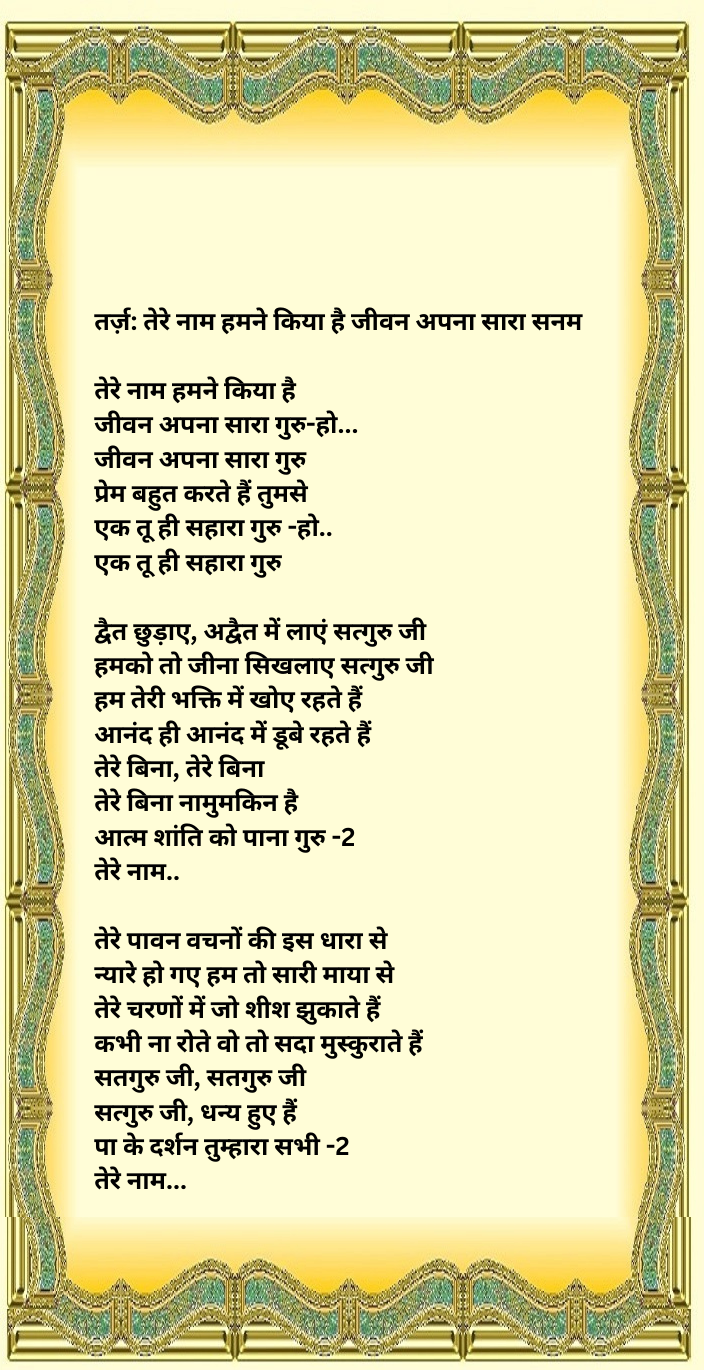 तर्ज़: तेरे नाम हमने किया है जीवन अपना सारा सनम
तेरे नाम हमने किया है
जीवन अपना सारा गुरु-हो...
जीवन अपना सारा गुरु
प्रेम बहुत करते हैं तुमसे
एक तू ही सहारा गुरु -हो..
एक तू ही सहारा गुरु
द्वैत छुड़ाए, अद्वैत में लाएं सत्गुरु जी
हमको तो जीना सिखलाए सत्गुरु जी
हम तेरी भक्ति में खोए रहते हैं
आनंद ही आनंद में डूबे रहते हैं
तेरे बिना, तेरे बिना
तेरे बिना नामुमकिन है
आत्म शांति को पाना गुरु -2
तेरे नाम..
तेरे पावन वचनों की इस धारा से
न्यारे हो गए हम तो सारी माया से
तेरे चरणों में जो शीश झुकाते हैं
कभी ना रोते वो तो सदा मुस्कुराते हैं
सतगुरु जी, सतगुरु जी
सत्गुरु जी, धन्य हुए हैं
पा के दर्शन तुम्हारा सभी -2
तेरे नाम...